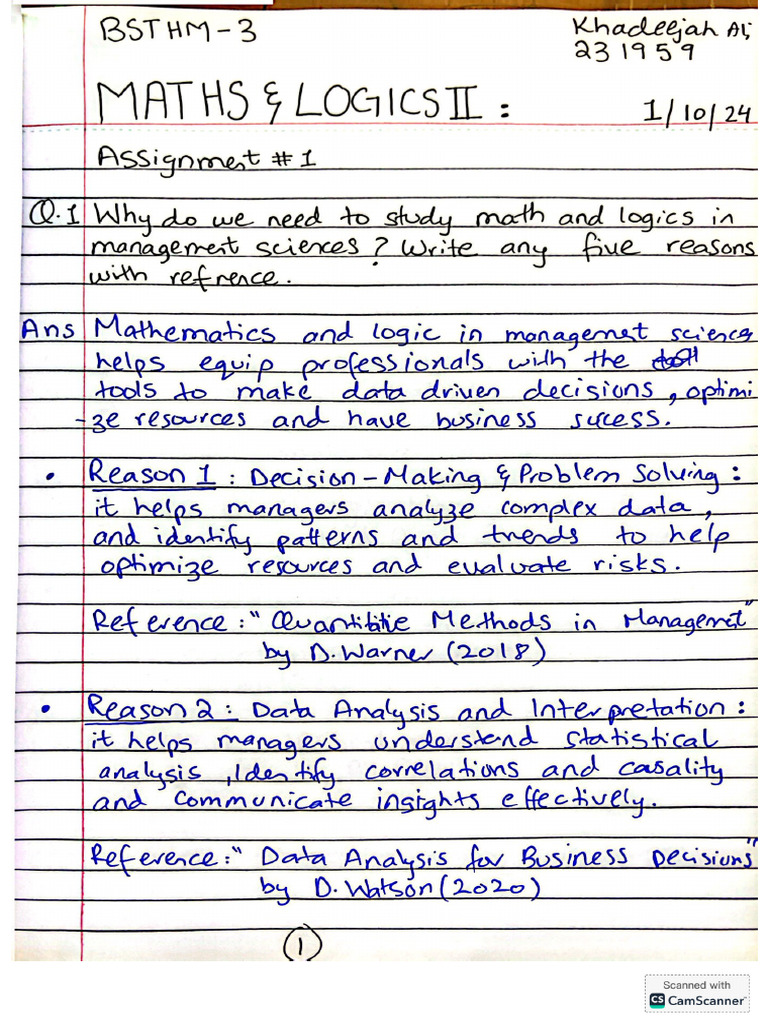 BSTHM-3
Khadeejah Ali
231959
MATHS & LOGICS II :
1/10/24
Assignment #1
Q.1 Why do we need to study math and logics in
management sciences? Write any five reasons
with refrence.
Ans Mathematics and logic in managemet sciences
helps equip professionals with the
tools to make data driven decisions, optimi
-ze resources and have business sucess.
• Reason 1 : Decision-Making & Problem Solving :
it helps managers analyze complex data,
and identify patterns and trends to help
optimize resources and evaluate risks.
Reference: "Quantititie Methods in Managemet"
by D. Warner (2018)
• Reason 2 : Data Analysis and Interpretation :
it helps managers understand statistical
analysis, Identify correlations and casality
and communicate insights effectively.
Reference: "Data Analysis for Business Decisions"
by D. Watson (2020)
1
Scanned with
CS CamScanner